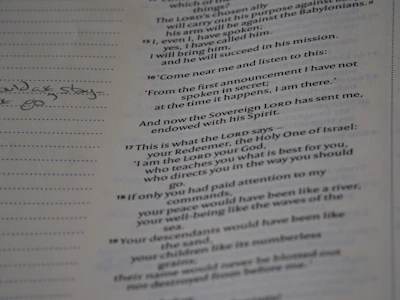 which of
things?
The LORD's chosen ally
will carry out his purpose against
his arm will be against the Babylonians.
15 I, even I, have spoken;
yes, I have called him.
I will bring him,
and he will succeed in his mission.
16 'Come near me and listen to this:
'From the first announcement I have not
spoken in secret;
at the time it happens, I am there.'
And now the Sovereign LORD has sent me,
endowed with his Spirit.
17 This is what the LORD says –
your Redeemer, the Holy One of Israel:
'I am the LORD your God,
who teaches you what is best for you,
who directs you in the way you should
go.
18 If only you had paid attention to my
commands,
your peace would have been like a river,
your well-being like the waves of the
sea.
19 Your descendants would have been like
the sand,
your children like its numberless
grains;
their name would never be blotted out
nor destroyed from before me.'
story
go